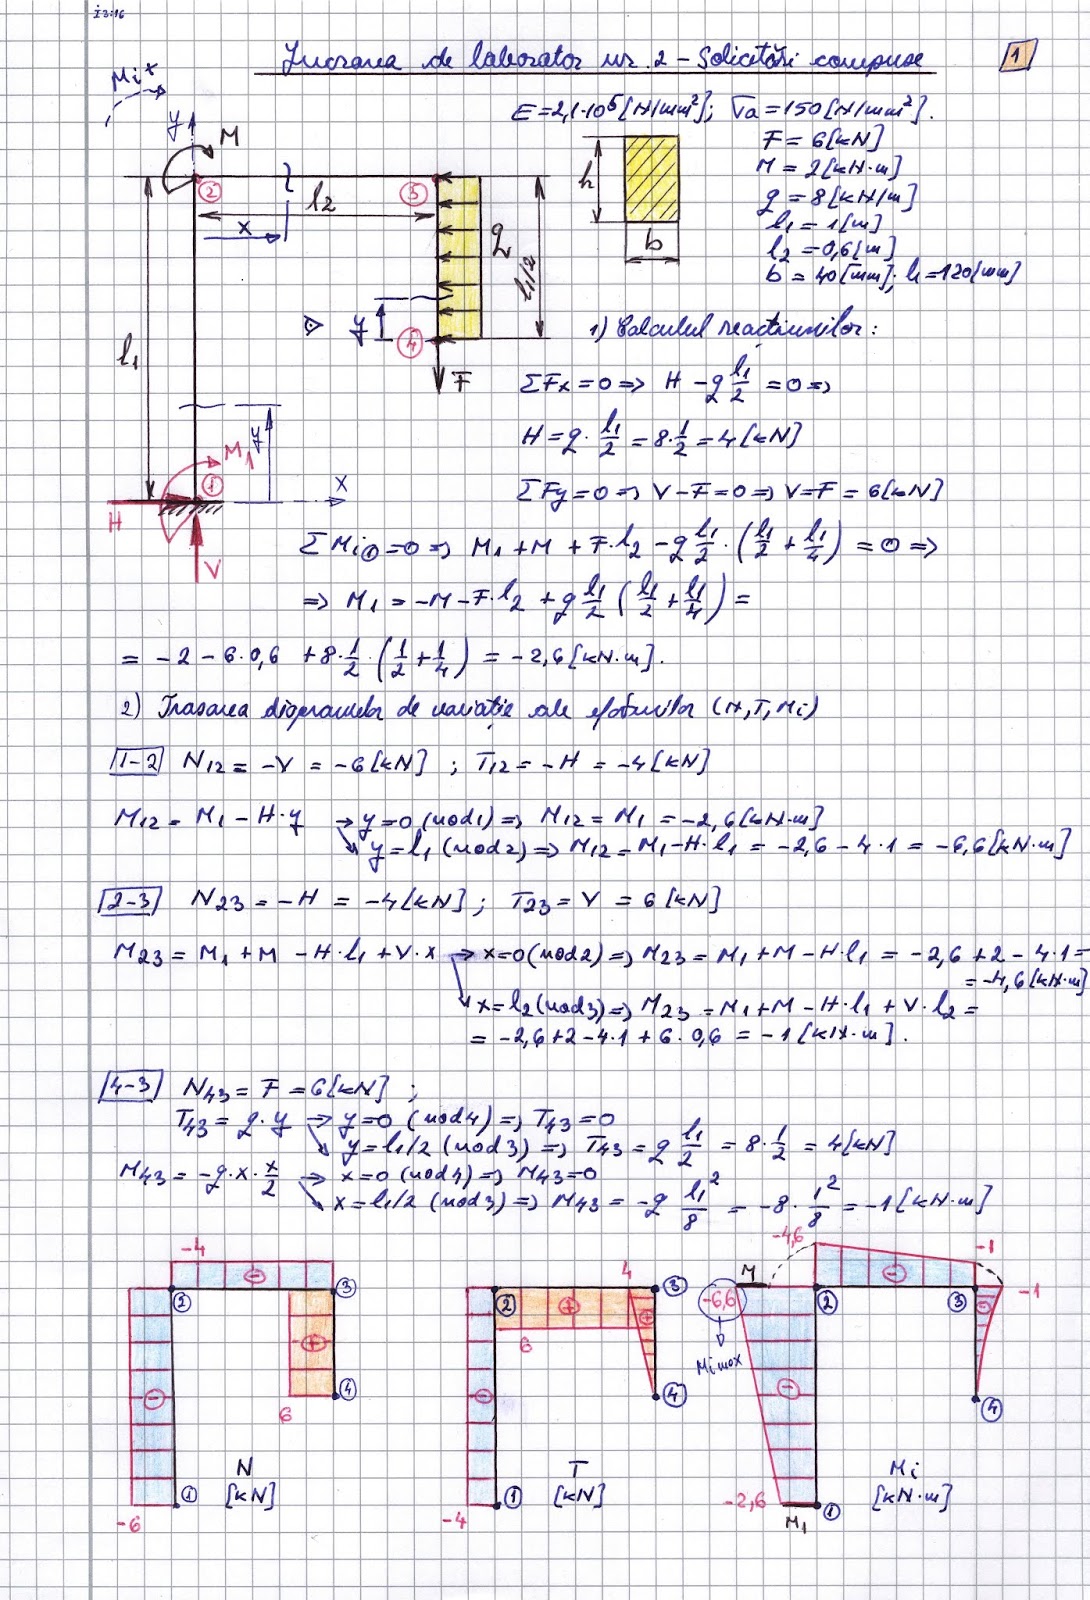 13:16
Lucrarea de laborator nr. 2 – Solicitări compuse
1
Mi+
E=2,1·10⁵[N/mm²]; σa=150[N/mm²].
F=6[kN]
M=2[kN·m]
q=8[kN/m]
l1=1[m]
l2=0,6[m]
b=40[mm]; h=120[mm]
y
M
2
3
l2
x
q
l1/2
y
4
F
l1
y
M1
1
x
H
V
h
b
1) Calculul reacțiunilor:
ΣFx=0 => H - q l1/2 = 0 =>
H = q · l1/2 = 8·1/2 = 4[kN]
ΣFy=0 => V-F=0 => V=F=6[kN]
ΣMi①=0 => M1+M+F·l2 - q l1/2 · (l1/2 + l1/4) = 0 =>
=> M1 = -M - F·l2 + q l1/2 (l1/2 + l1/4) =
= -2 - 6·0,6 + 8·1/2·(1/2 + 1/4) = -2,6[kN·m].
2) Trasarea diagramelor de variație ale eforturilor (N,T,Mi)
1-2 N12 = -V = -6[kN] ; T12 = -H = -4[kN]
M12 = M1 - H·y → y=0 (nod1) => M12 = M1 = -2,6[kN·m]
y=l1 (nod2) => M12 = M1-H·l1 = -2,6 - 4·1 = -6,6[kN·m]
2-3 N23 = -H = -4[kN] ; T23 = V = 6[kN]
M23 = M1 + M - H·l1 + V·x → x=0 (nod2) => M23 = M1+M-H·l1 = -2,6+2-4·1 =
= -4,6[kN·m]
x=l2 (nod3) => M23 = M1+M-H·l1+V·l2 =
= -2,6+2-4·1+6·0,6 = -1[kN·m].
4-3 N43 = F = 6[kN] ;
T43 = q·y → y=0 (nod4) => T43=0
y=l1/2 (nod3) => T43 = q l1/2 = 8·1/2 = 4[kN]
M43 = -q·x·x/2 → x=0 (nod4) => M43=0
x=l1/2 (nod3) => M43 = -q l1²/8 = -8·1²/8 = -1[kN·m]
-4
2
3
4
6
1
-6
N
[kN]
4
2
3
6
4
1
-4
T
[kN]
-4,6
-1
M
-6,6
2
3
-1
Mimax
4
-2,6
M1
1
Mi
[kN·m]